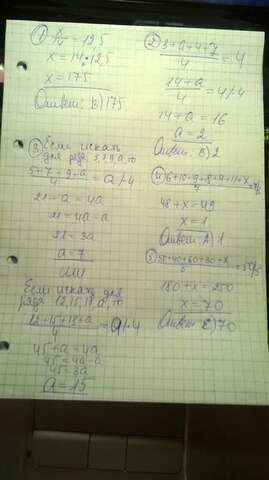 ① x/14 = 12,5
x = 14·12,5
x = 175
Ответ: В) 175
② 3+a+4+7/4 = 4
14+a/4 = 4/·4
14+a = 16
a = 2
Ответ: Б) 2
③ Если искать
для ряда 5, 7, 9, a, то
5+7+9+a/4 = a/·4
21+a = 4a
21 = 4a-a
21 = 3a
a = 7
или
Если искать для
ряда 12, 15, 18, a, то
12+15+18+a/4 = a/·4
45+a = 4a
45 = 4a-a
45 = 3a
a = 15
48+x = 49
x = 1
Ответ: А) 1
180+x = 250
x = 70
Ответ: Е) 70